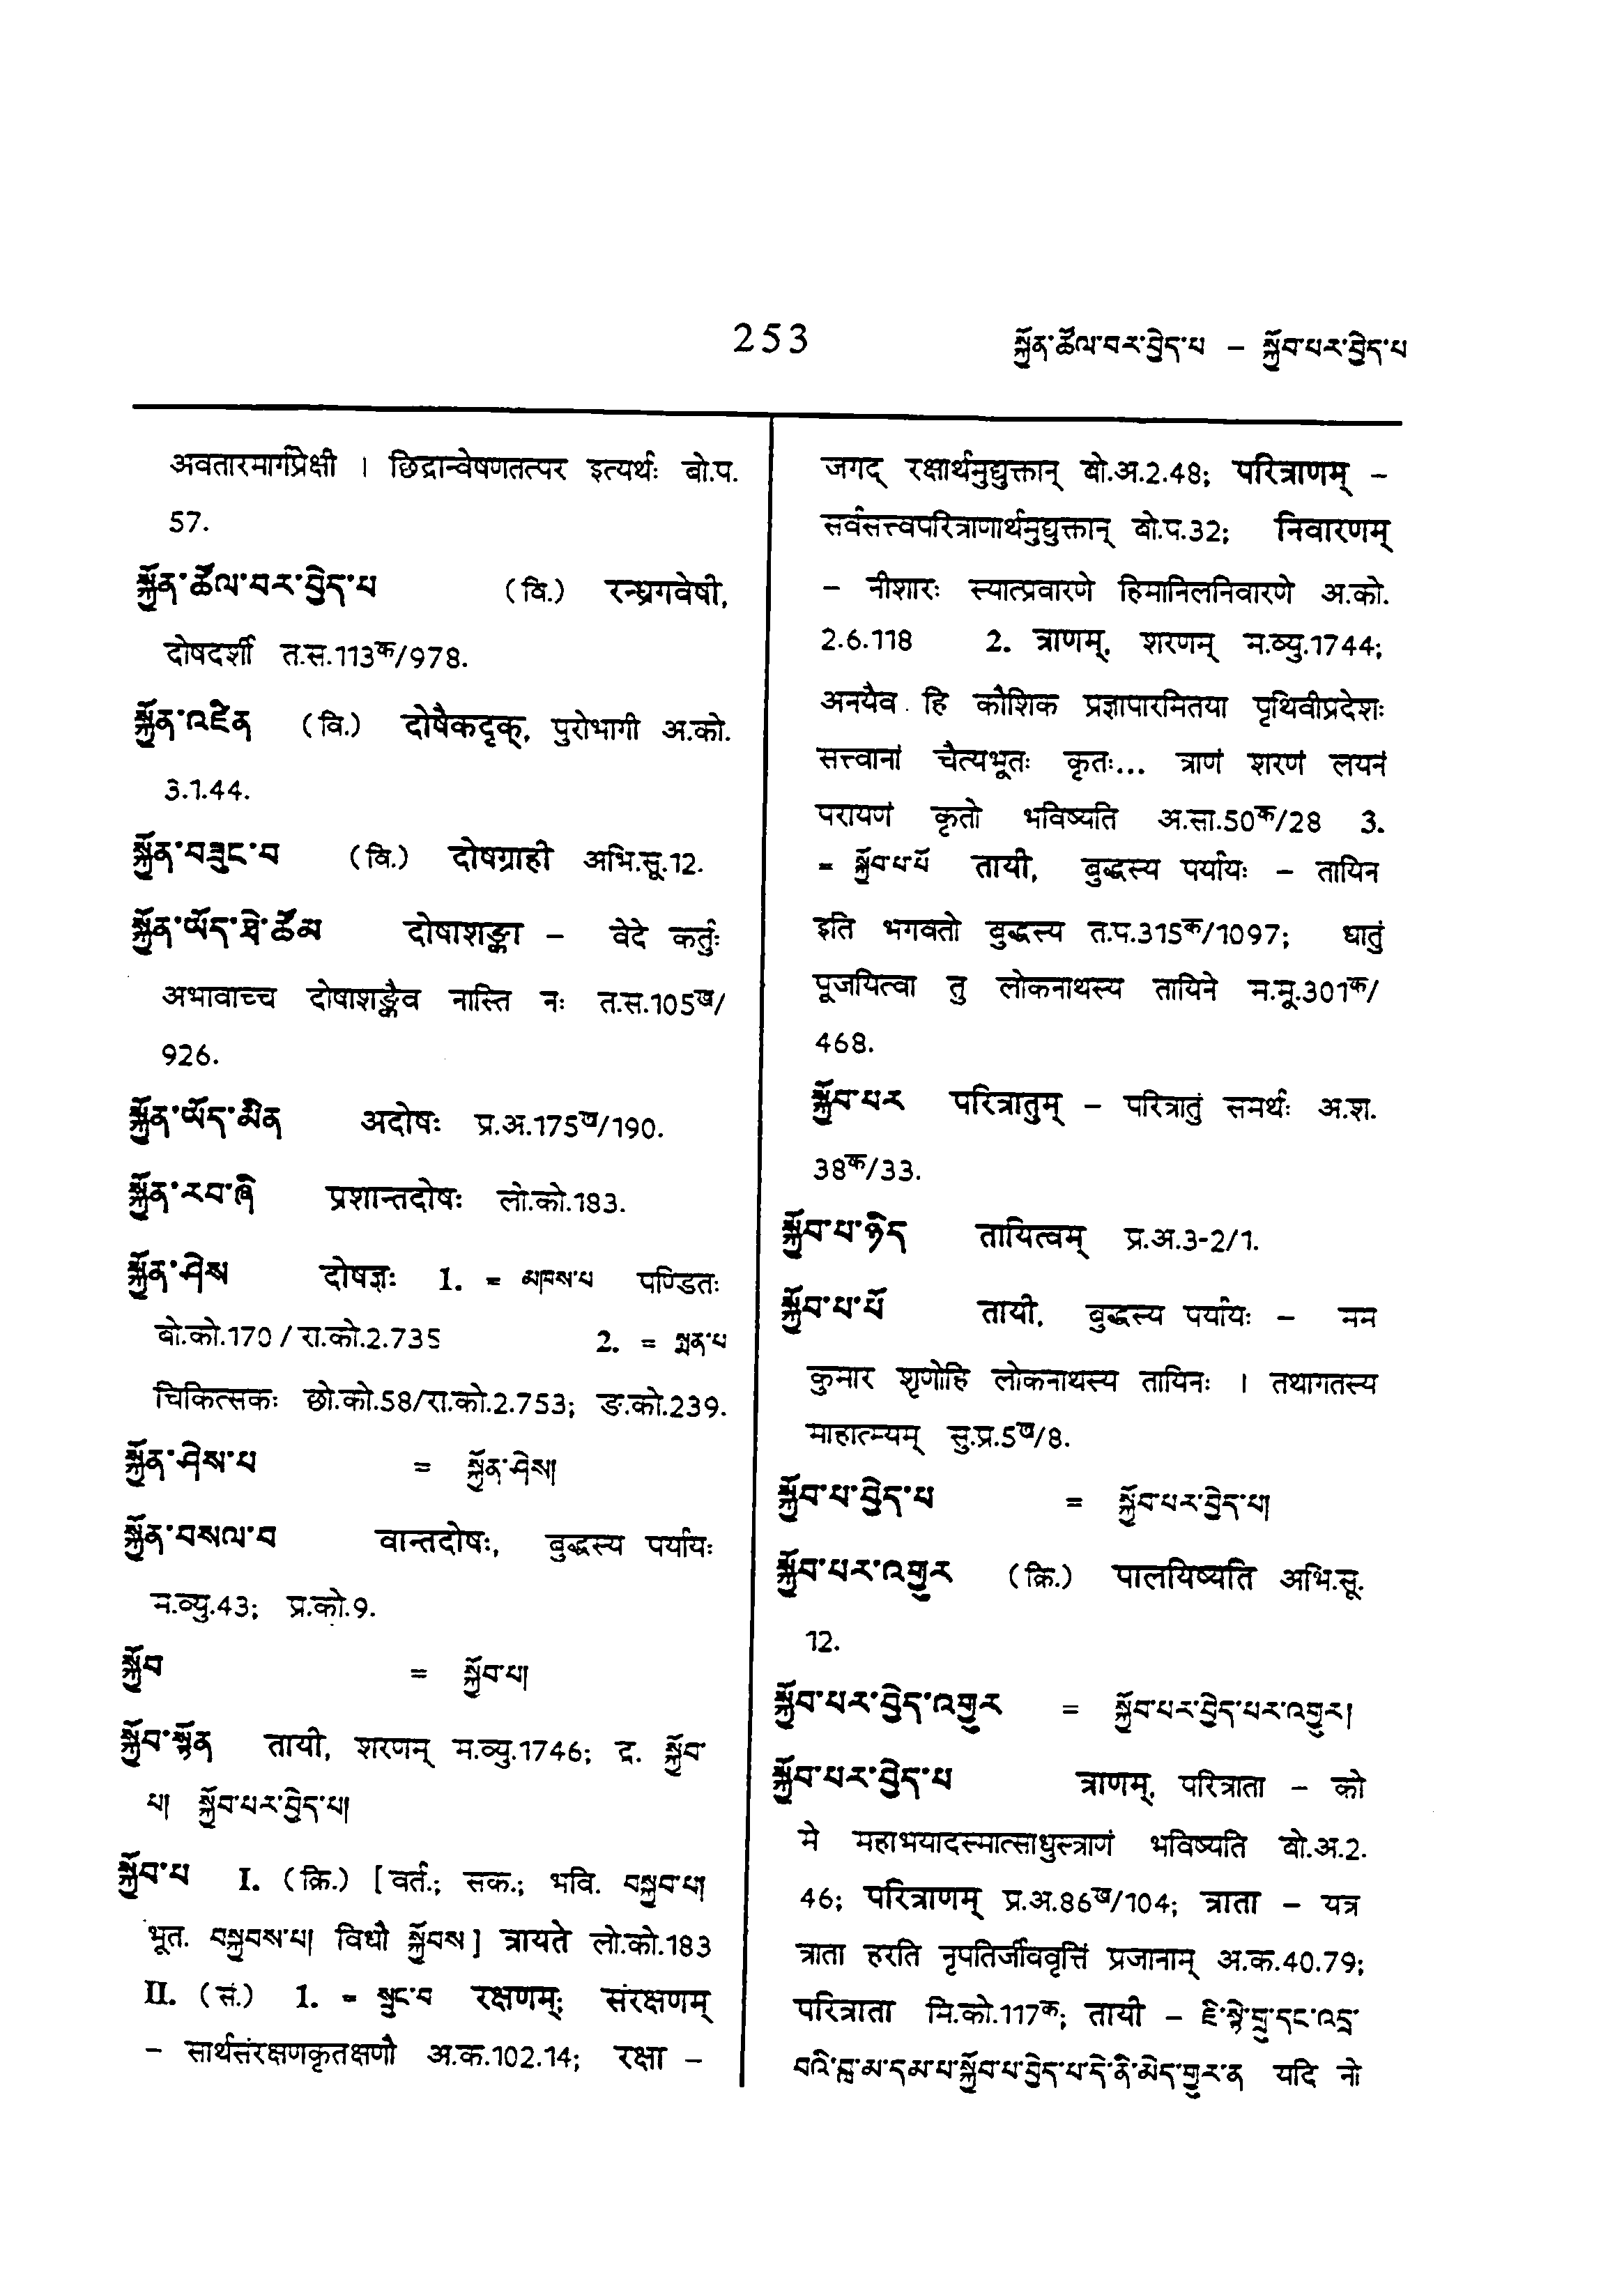 253
སྐྱོན་ཚོལ་བར་བྱེད་པ – སྐྱོབ་པར་བྱེད་པ
अवतारमार्गप्रेक्षी । छिद्रान्वेषणतत्पर इत्यर्थः बो.प.
57.
སྐྱོན་ཚོལ་བར་བྱེད་པ (वि.) रन्ध्रगवेषी,
दोषदर्शी त.स.113क/978.
སྐྱོན་འཛིན (वि.) दोषैकदृक्, पुरोभागी अ.को.
3.1.44.
སྐྱོན་བཟུང་བ (वि.) दोषग्राही अभि.सू.12.
སྐྱོན་ཡོད་ཐེ་ཚོམ दोषाशङ्का – वेदे कर्तुः
अभावाच्च दोषाशङ्कैव नास्ति नः त.स.105ख/
926.
སྐྱོན་ཡོད་མིན अदोषः प्र.अ.175ख/190.
སྐྱོན་རབ་ཞི प्रशान्तदोषः लो.को.183.
སྐྱོན་ཤེས दोषज्ञः 1. = མཁས་པ पण्डितः
बो.को.170 / रा.को.2.735 2. = སྨན་པ
चिकित्सकः छो.को.58/रा.को.2.753; ङ.को.239.
སྐྱོན་ཤེས་པ = སྐྱོན་ཤེས།
སྐྱོན་བསལ་བ वान्तदोषः, बुद्धस्य पर्यायः
म.व्यु.43; प्र.को.9.
སྐྱོབ = སྐྱོབ་པ།
སྐྱོབ་སྟོན तायी, शरणम् म.व्यु.1746; द्र. སྐྱོབ་
པ། སྐྱོབ་པར་བྱེད་པ།
སྐྱོབ་པ I. (क्रि.) [वर्त.; सक.; भवि. བསྐྱབ་པ།
भूत. བསྐྱབས་པ། विधौ སྐྱོབས] त्रायते लो.को.183
II. (सं.) 1. = སྲུང་བ रक्षणम्; संरक्षणम्
– सार्थसंरक्षणकृतक्षणौ अ.क.102.14; रक्षा –
जगद् रक्षार्थमुद्युक्तान् बो.अ.2.48; परित्राणम् –
सर्वसत्त्वपरित्राणार्थमुद्युक्तान् बो.प.32; निवारणम्
– नीशारः स्यात्प्रवारणे हिमानिलनिवारणे अ.को.
2.6.118 2. त्राणम्, शरणम् म.व्यु.1744;
अनयैव हि कौशिक प्रज्ञापारमितया पृथिवीप्रदेशः
सत्त्वानां चैत्यभूतः कृतः... त्राणं शरणं लयनं
परायणं कृतो भविष्यति अ.सा.50क/28 3.
= སྐྱོབ་པ་པོ तायी, बुद्धस्य पर्यायः – तायिन
इति भगवतो बुद्धस्य त.प.315क/1097; धातुं
पूजयित्वा तु लोकनाथस्य तायिने म.मू.301क/
468.
སྐྱོབ་པར परित्रातुम् – परित्रातुं समर्थः अ.श.
38क/33.
སྐྱོབ་པ་ཉིད तायित्वम् प्र.अ.3-2/1.
སྐྱོབ་པ་པོ तायी, बुद्धस्य पर्यायः – मम
कुमार शृणोहि लोकनाथस्य तायिनः । तथागतस्य
माहात्म्यम् सु.प्र.5ख/8.
སྐྱོབ་པ་བྱེད་པ = སྐྱོབ་པར་བྱེད་པ།
སྐྱོབ་པར་འགྱུར (क्रि.) पालयिष्यति अभि.सू.
12.
སྐྱོབ་པར་བྱེད་འགྱུར = སྐྱོབ་པར་བྱེད་པར་འགྱུར།
སྐྱོབ་པར་བྱེད་པ त्राणम्, परित्राता – को
मे महाभयादस्मात्साधुस्त्राणं भविष्यति बो.अ.2.
46; परित्राणम् प्र.अ.86ख/104; त्राता – यत्र
त्राता हरति नृपतिर्जीववृत्तिं प्रजानाम् अ.क.40.79;
परित्राता मि.को.117क; तायी – ཇི་སྟེ་བླ་དང་འདྲ་
བའི་བླ་མ་དམ་པ་སྐྱོབ་པ་བྱེད་པ་དེ་ནི་མེད་གྱུར་ན यदि नो